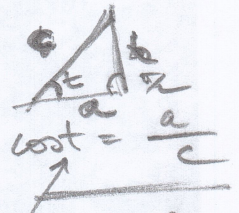 c
b
t
a
cos t = a/c